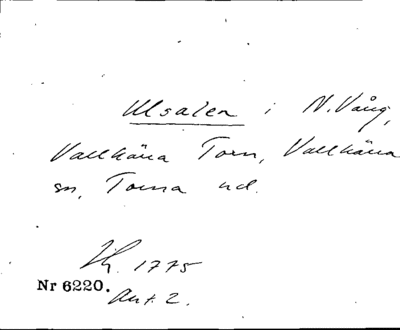 Ulsalen i N. Vång,
Vallkärra Torn, Vallkärra
sn, Torna hd.
1775
Nr 6220.
Akt. 2.